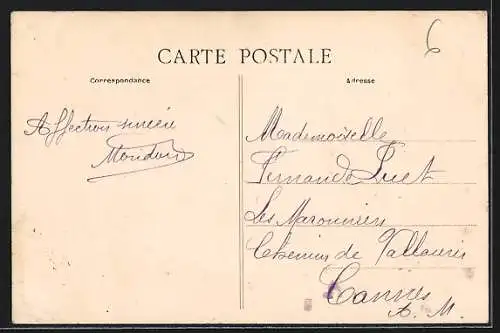 CARTE POSTALE
6
Correspondance
Adresse
Affection sincère
Mademoiselle
Fernande
Les Maronniers
Chemin de Vallauris
Cannes
A. M.